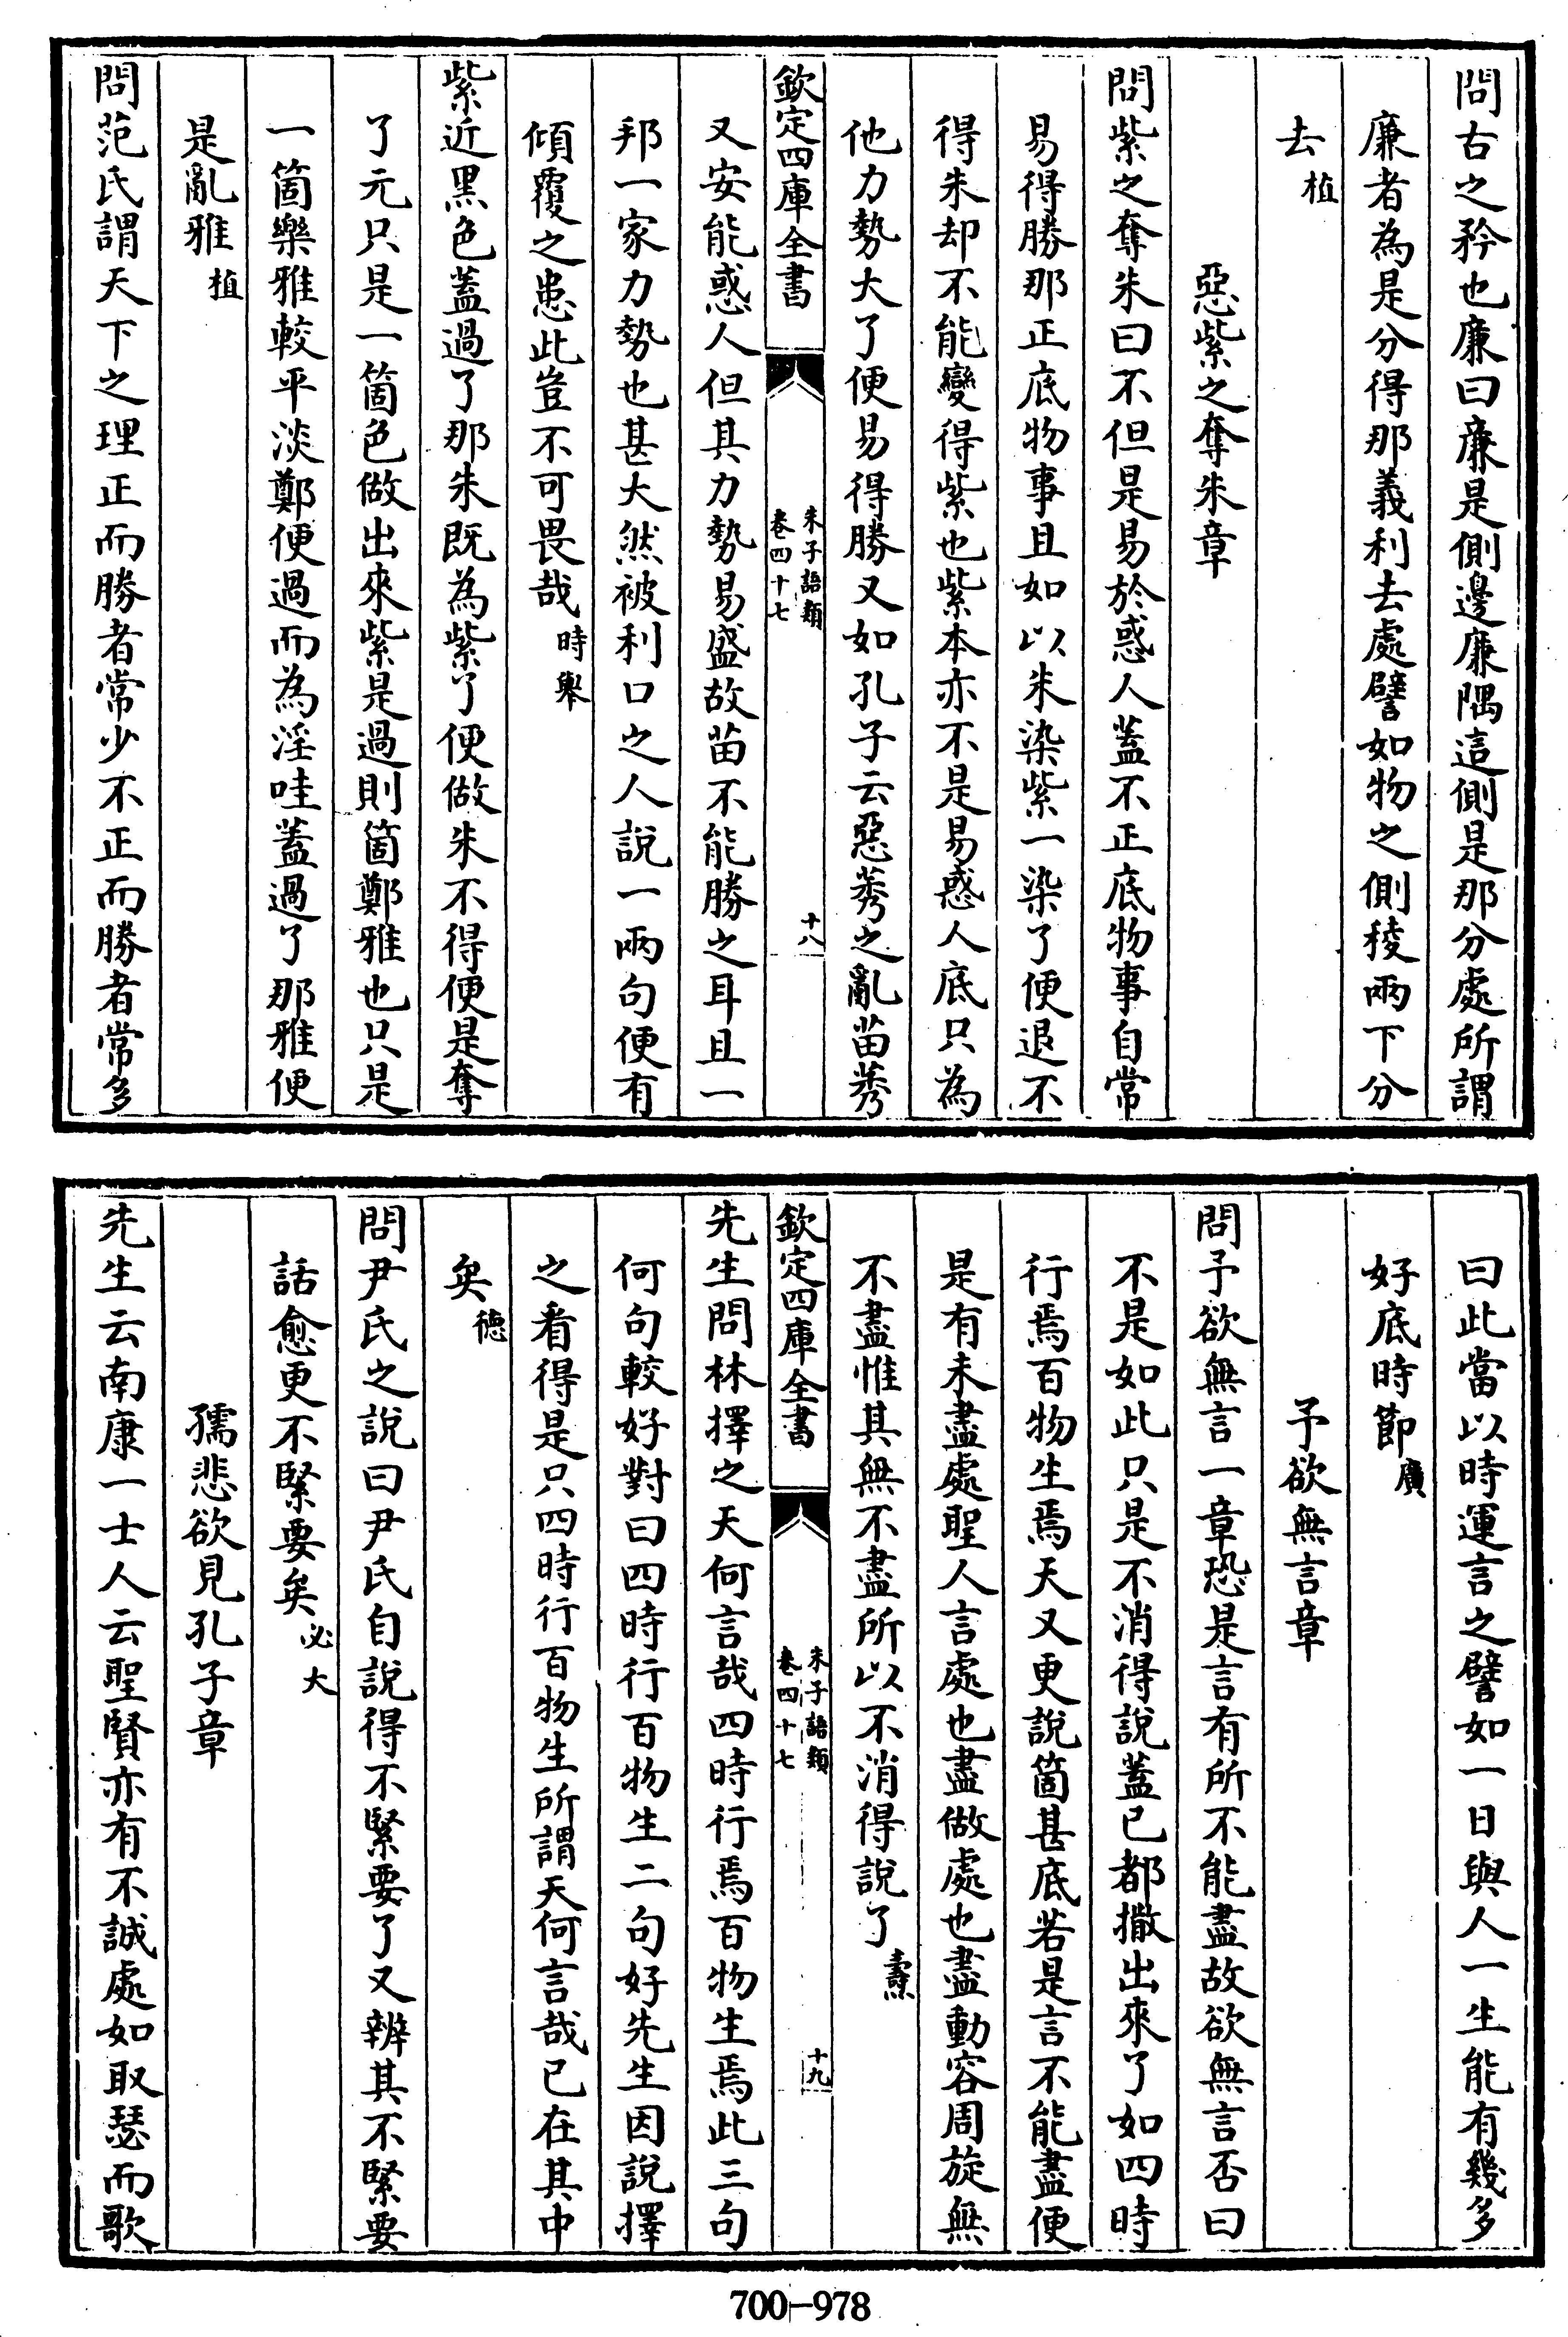 問古之矜也廉曰廉是側邊廉隅這側是那分處所謂
廉者為是分得那義利去處譬如物之側稜兩下分
去植
惡紫之奪朱章
問紫之奪朱曰不但是易於惑人蓋不正底物事自常
易得勝那正底物事且如以朱染紫一染了便退不
得朱却不能變得紫也紫本亦不是易惑人底只為
他力勢大了便易得勝又如孔子云惡莠之亂苗莠
欽定四庫全書
朱子語類
卷四十七
十八
又安能惑人但其力勢易盛故苗不能勝之耳且一
邦一家力勢也甚大然被利口之人說一兩句便有
傾覆之患此豈不可畏哉時舉
紫近黑色蓋過了那朱既為紫了便做朱不得便是奪
了元只是一箇色做出來紫是過則箇鄭雅也只是
一箇樂雅較平淡鄭便過而為淫哇蓋過了那雅便
是亂雅植
問范氏謂天下之理正而勝者常少不正而勝者常多
曰此當以時運言之譬如一日與人一生能有幾多
好底時節廣
予欲無言章
問予欲無言一章恐是言有所不能盡故欲無言否曰
不是如此只是不消得說蓋已都撒出來了如四時
行焉百物生焉天又更說箇甚底若是言不能盡便
是有未盡處聖人言處也盡做處也盡動容周旋無
不盡惟其無不盡所以不消得說了燾
欽定四庫全書
朱子語類
卷四十七
十九
先生問林擇之天何言哉四時行焉百物生焉此三句
何句較好對曰四時行百物生二句好先生因說擇
之看得是只四時行百物生所謂天何言哉已在其中
矣德
問尹氏之說曰尹氏自說得不緊要了又辨其不緊要
話愈更不緊要矣必大
孺悲欲見孔子章
先生云南康一士人云聖賢亦有不誠處如取瑟而歌
700-978